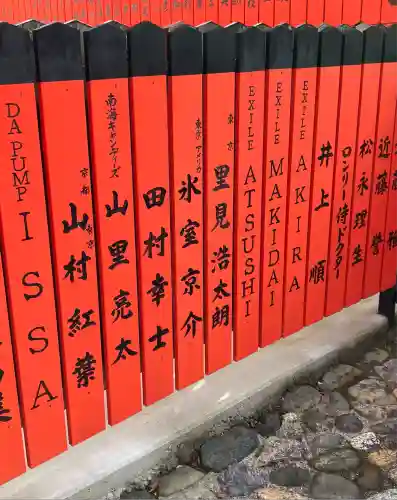 DA PUMP ISSA
京都 東京 山村紅葉
南海キャンディーズ 山里亮太
田村幸士
東京 アメリカ 氷室京介
東京 里見浩太朗
EXILE ATSUSHI
EXILE MAKIDAI
EXILE AKIRA
井上順
ロンリー侍ドクター
松永理生
近藤誉